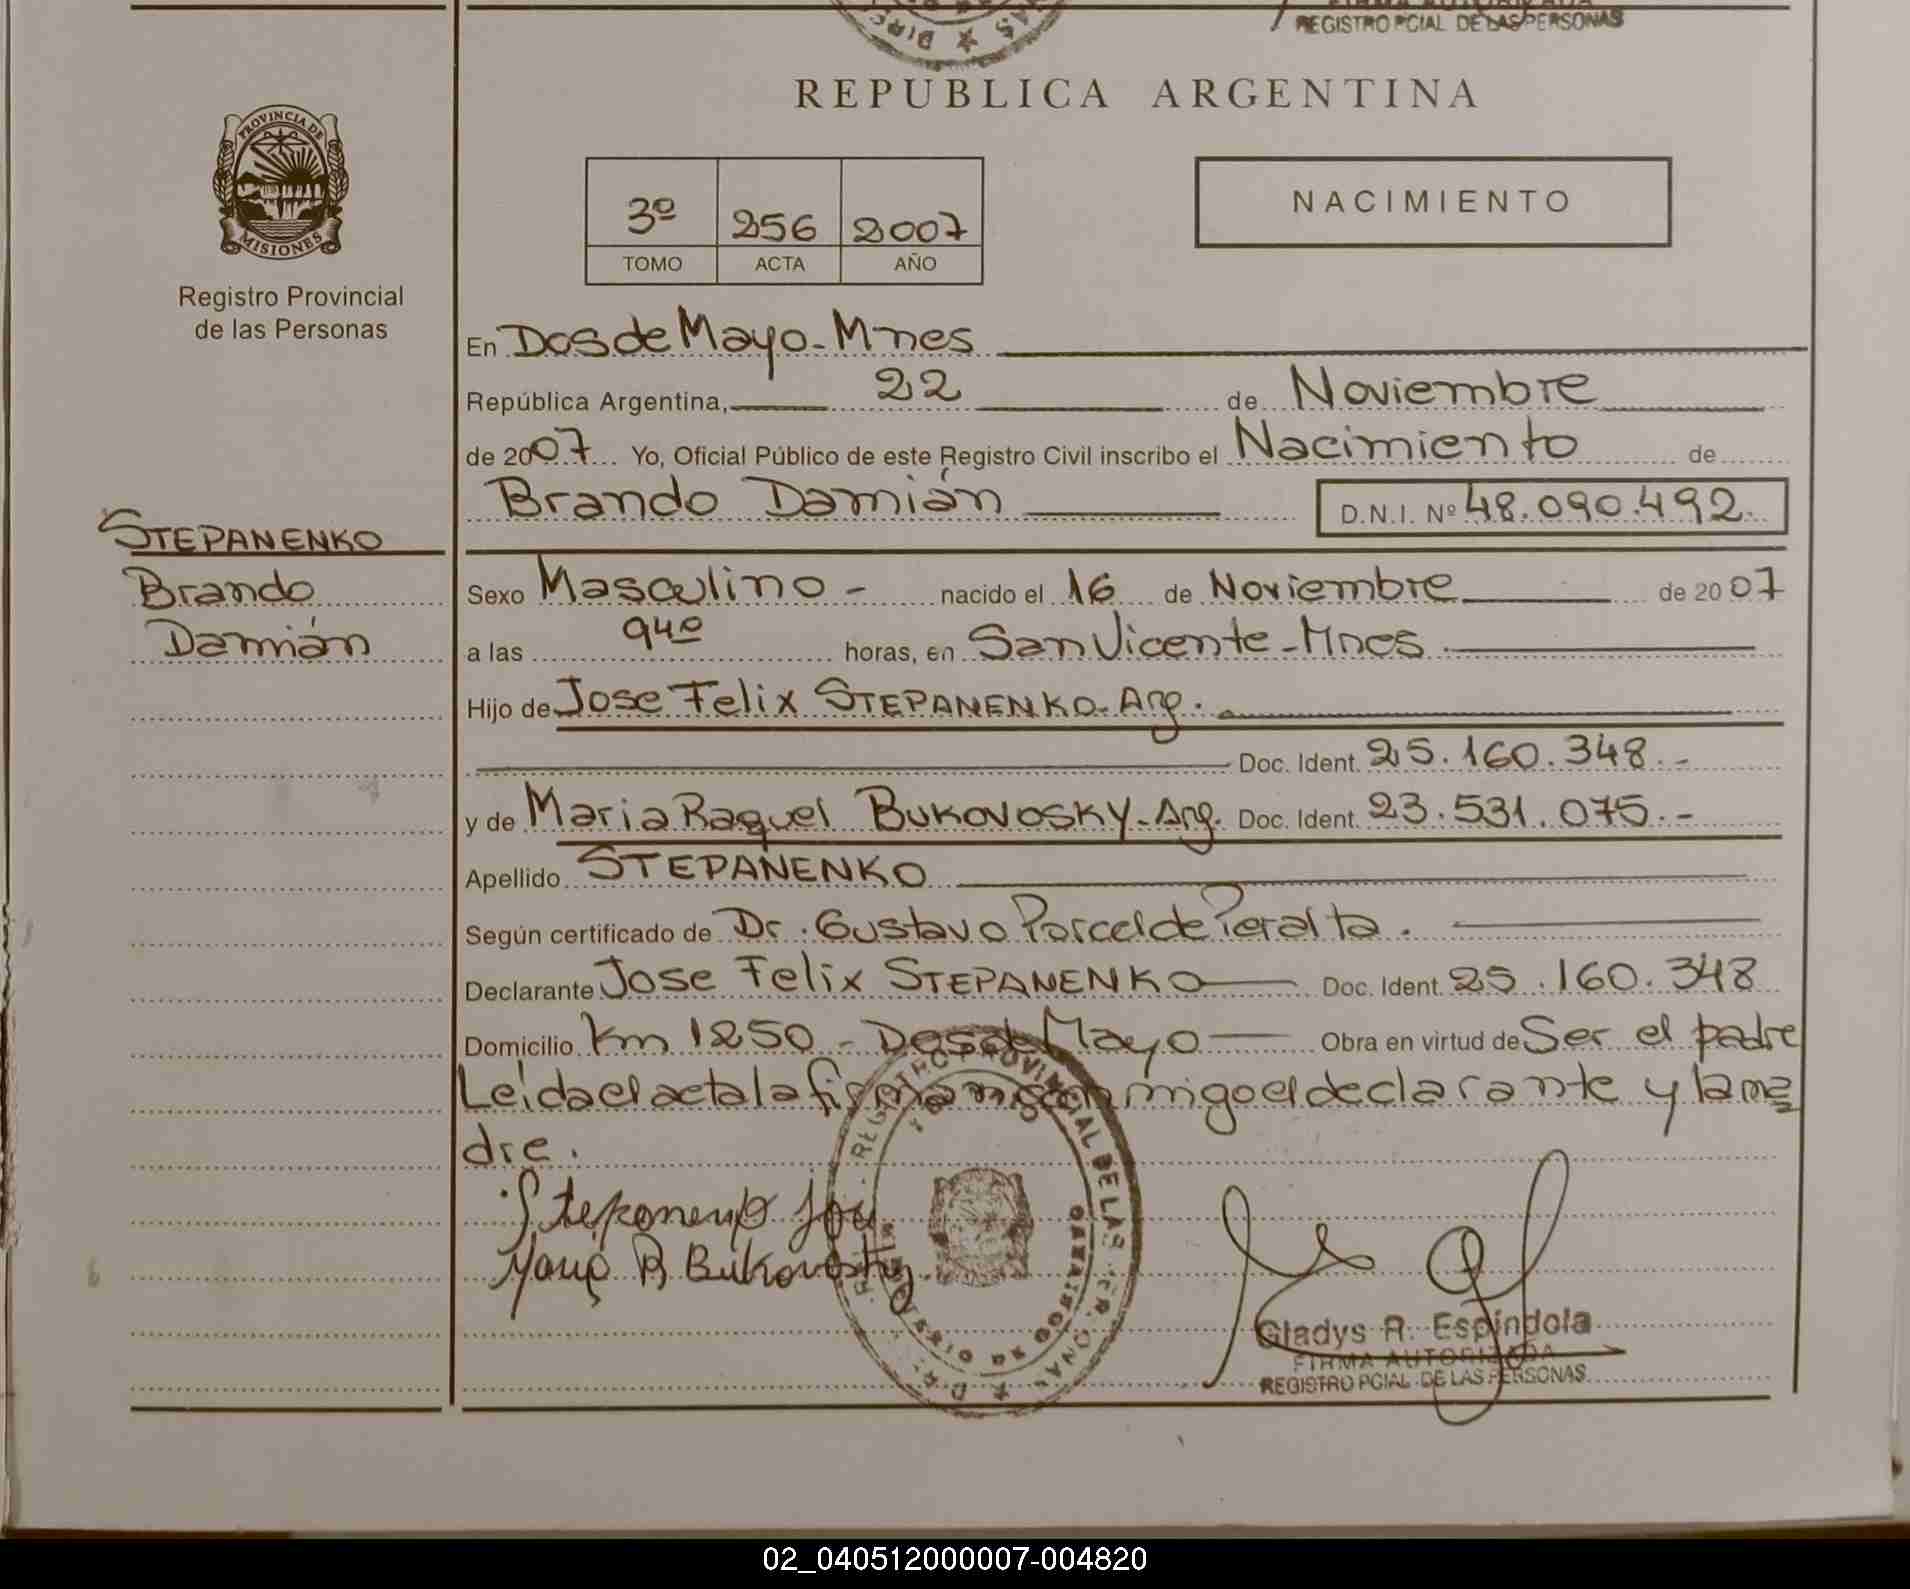 REGISTRO PCIAL DE LAS PERSONAS
REPUBLICA ARGENTINA
PROVINCIA DE
MISIONES
Registro Provincial
de las Personas
3º 256 2007
TOMO ACTA AÑO
NACIMIENTO
En Dos de Mayo - Mnes
República Argentina, 22 de Noviembre
de 2007 Yo, Oficial Público de este Registro Civil inscribo el Nacimiento de
Brando Damián D.N.I. Nº 48.090.492.
STEPANENKO
Brando
Damián
Sexo Masculino - nacido el 16 de Noviembre de 2007
a las 9 4º horas, en San Vicente - Mnes
Hijo de Jose Felix STEPANENKO - Arg.
Doc. Ident. 25.160.348.-
y de Maria Raquel BUKOVOSKY - Arg. Doc. Ident. 23.531.075.-
Apellido STEPANENKO
Según certificado de Dr. Gustavo Porcel de Peralta.
Declarante Jose Felix STEPANENKO Doc. Ident. 25.160.348
Domicilio Km 1250 - Dos de Mayo Obra en virtud de Ser el padre
Leida el acta la firman con migo el declarante y la ma
dre.
Stepanenko Jose
Maria R Bukovosky
REGISTRO PROVINCIAL DE LAS PERSONAS
Gladys R. Espindola
FIRMA AUTORIZADA
REGISTRO PCIAL DE LAS PERSONAS
02_040512000007-004820